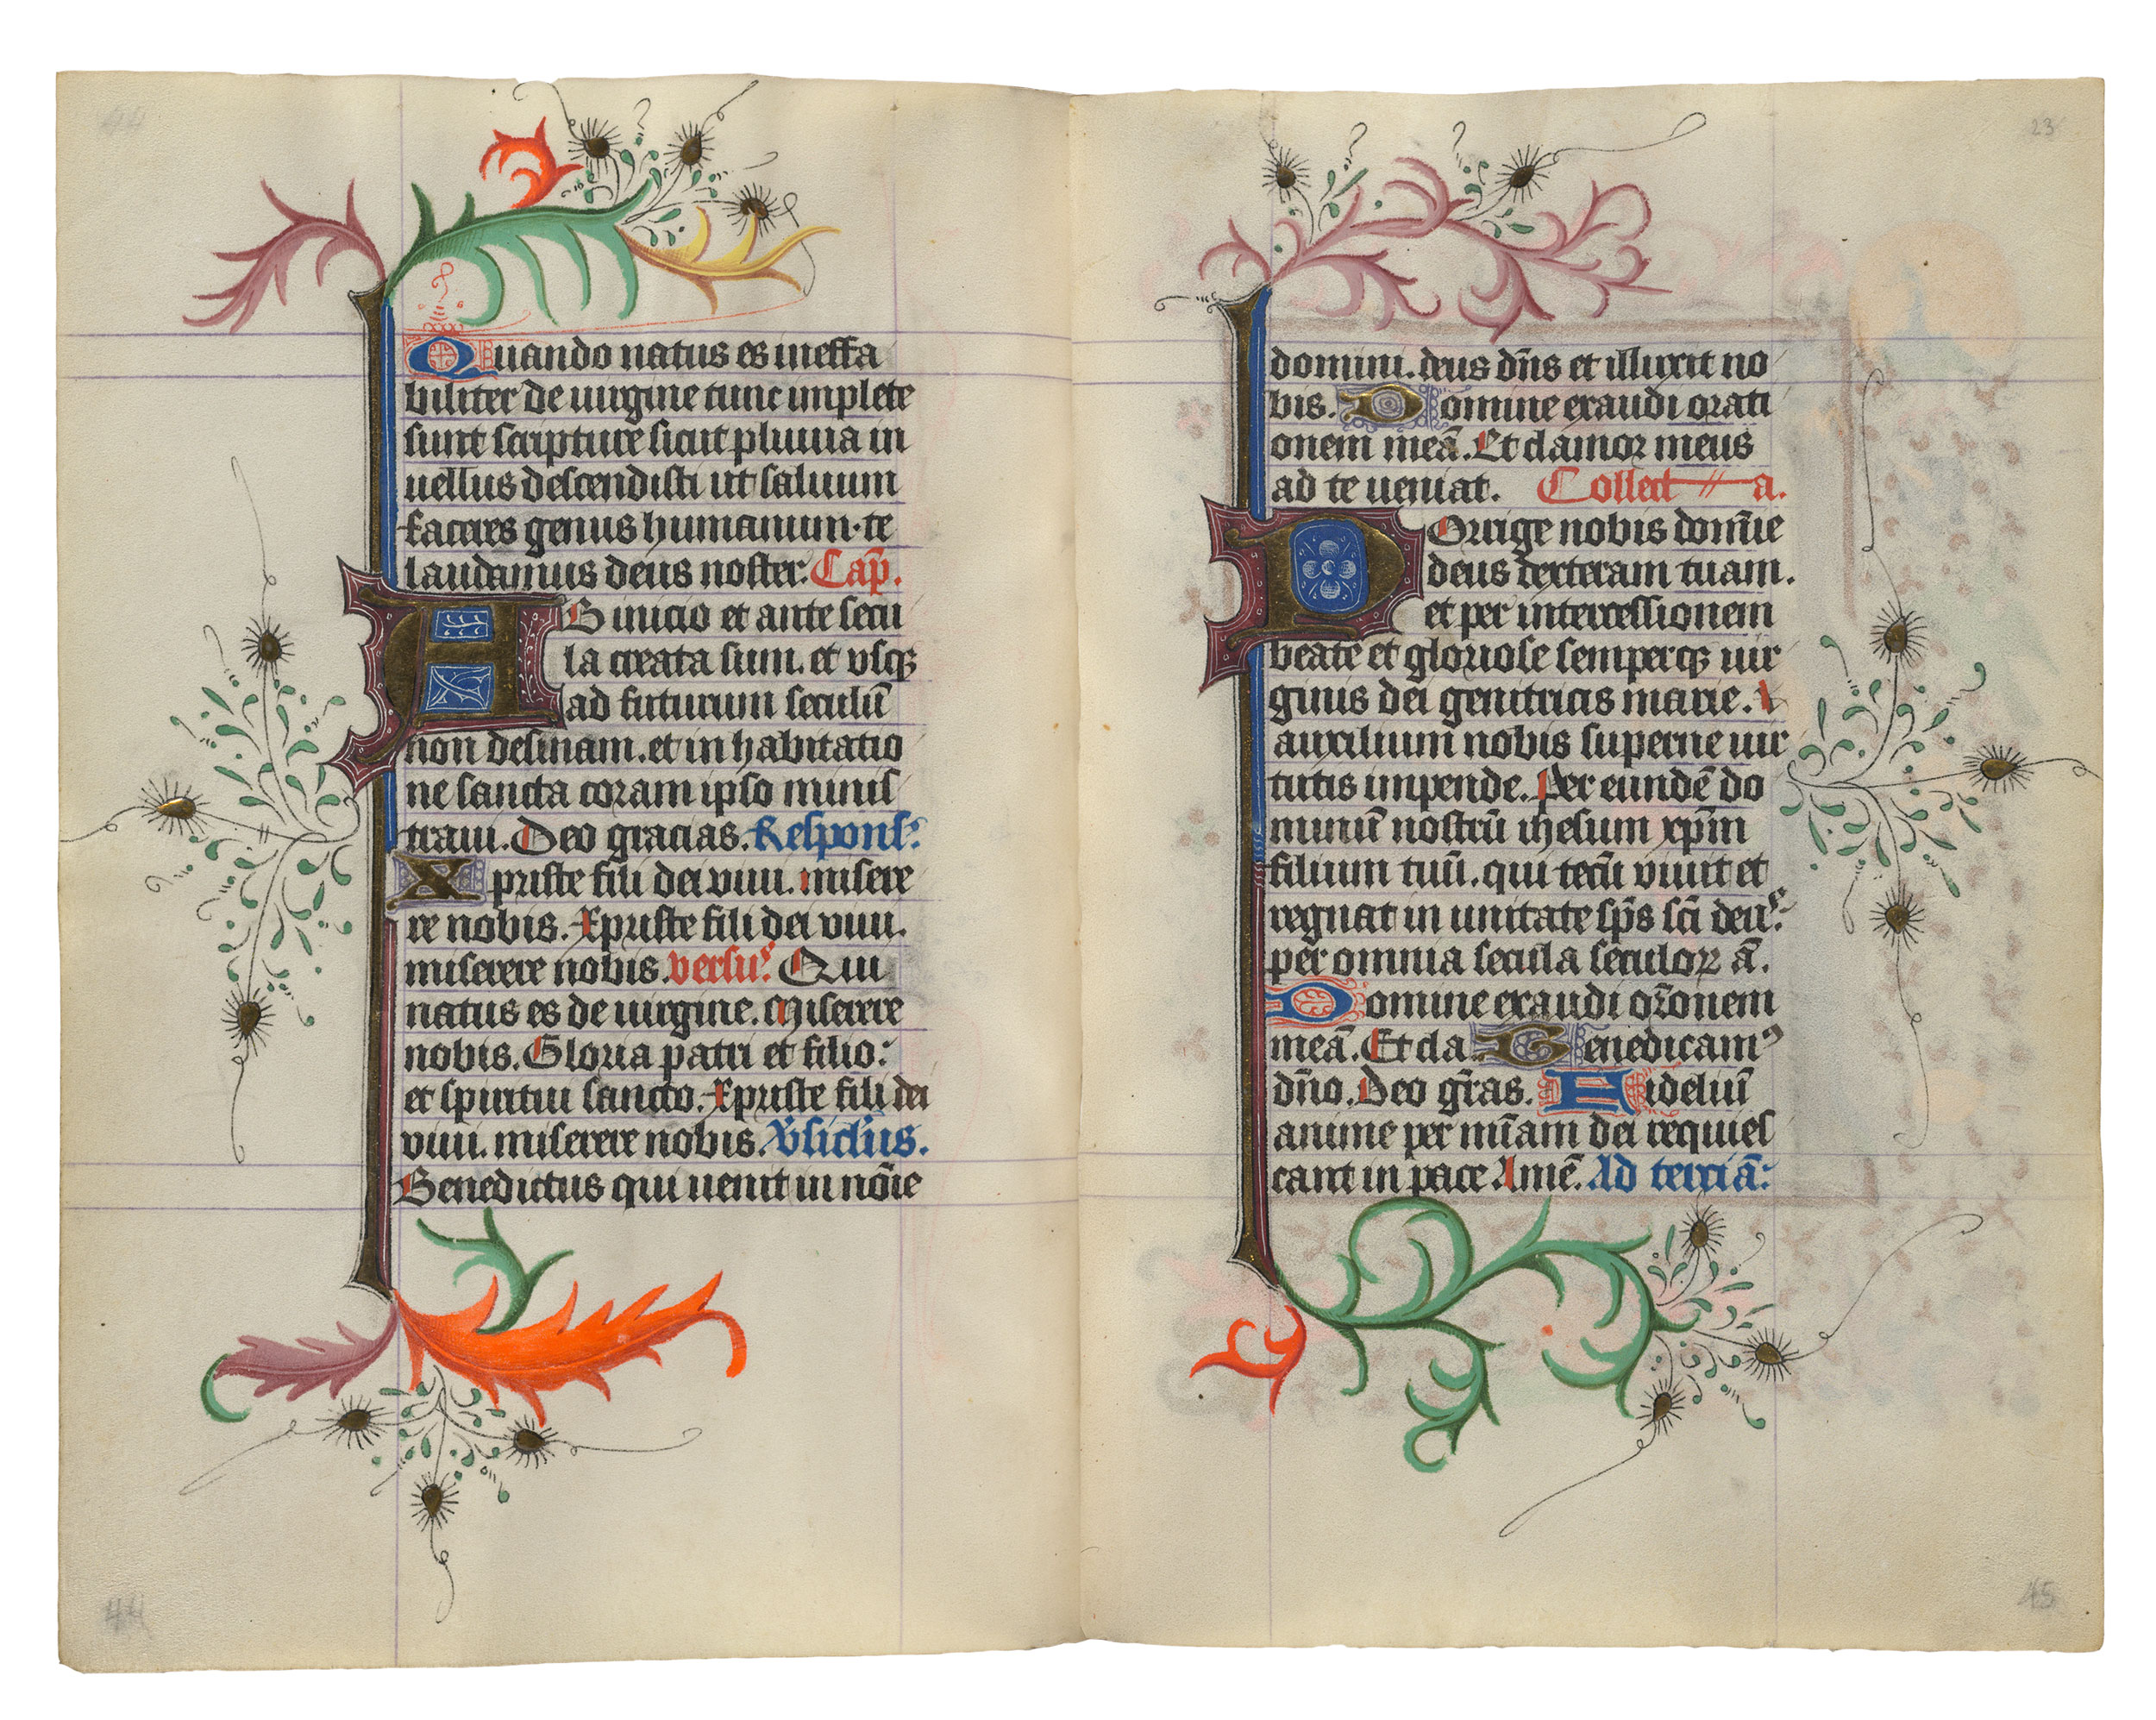 44
Quando natus es ineffa
biliter de uirgine tunc implete
sunt scripture sicut pluuia in
uellus descendisti ut saluum
faceres genus humanum·te
laudamus deus noster. Cap̄.
AB inicio et ante secu
la creata sum. et vsqꝫ
ad futurum seculū
non desinam. et in habitatio
ne sancta coram ipso minis
traui. Deo gracias. Respons᷒:
Xpriste fili dei viui. misere
re nobis. Xpriste fili dei viui.
miserere nobis. versu᷒. Qui
natus es de uirgine. Miserere
nobis. Gloria patri et filio:
et spiritui sancto. Xpriste fili dei
viui. miserere nobis. Vʼsiclʼus.
Benedictus qui uenit in nōie
44
23
domini. deus dn̄s et illuxit no
bis. Domine exaudi orati
onem meā. Et clamor meus
ad te ueniat. Collect // a.
POrrige nobis domīe
deus dexteram tuam.
et per intercessionem
beate et gloriose semperqꝫ uir
ginis dei genitricis marie.
auxilium nobis superne uir
tutis impende. Per eundē do
minū nostrū ihesum xp̄m
filium tuū. qui tecū viuit et
regnat in unitate sp̄s sc̄i deu᷒:
per omnia secula seculoꝝ ā.
Domine exaudi or̄onem
meā. Et cla. Benedicamꝰ
dn̄o. Deo gr̄as. Fideliū
anime per mīam dei requies
cant in pace Amē. Ad terciā:
45